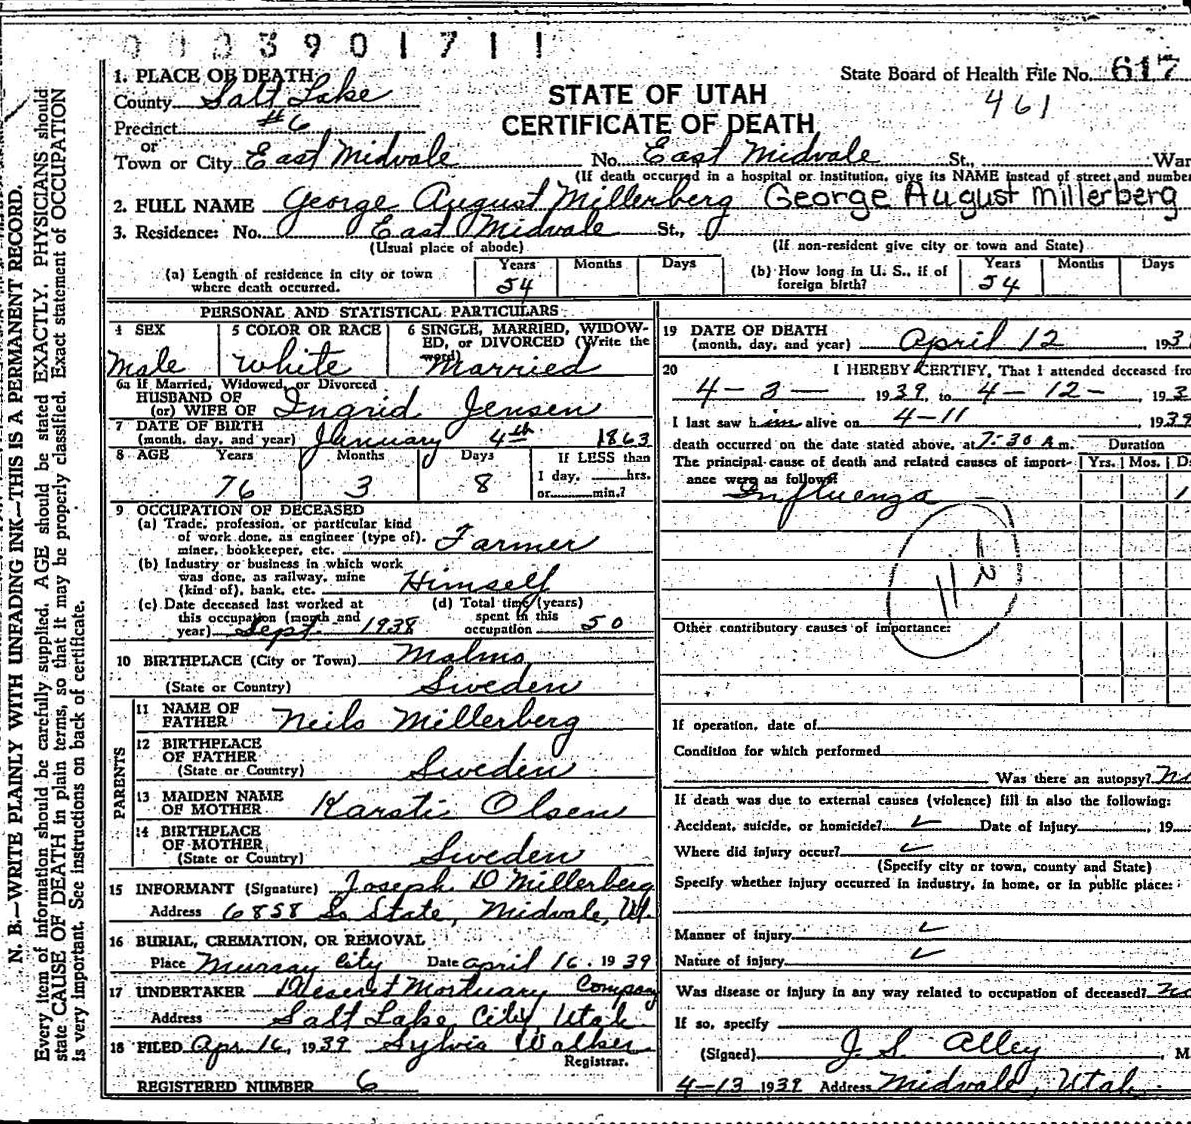 0003901711
State Board of Health File No. 617
461
STATE OF UTAH
CERTIFICATE OF DEATH
1. PLACE OF DEATH
County Salt Lake
Precinct #6
or
Town or City East Midvale No. East Midvale St., War
(If death occurred in a hospital or institution, give its NAME instead of street and number
2. FULL NAME George August Millerberg George August Millerberg
3. Residence: No. East Midvale St.,
(Usual place of abode) (If non-resident give city or town and State)
(a) Length of residence in city or town where death occurred. Years 54 Months Days
(b) How long in U. S., if of foreign birth? Years 54 Months Days
PERSONAL AND STATISTICAL PARTICULARS
4 SEX Male
5 COLOR OR RACE White
6 SINGLE, MARRIED, WIDOWED, or DIVORCED (Write the word) Married
6a If Married, Widowed, or Divorced
HUSBAND OF
(or) WIFE OF Ingrid Jensen
7 DATE OF BIRTH
(month, day, and year) January 4th 1863
8 AGE Years 76 Months 3 Days 8 If LESS than 1 day, hrs. or min.?
9 OCCUPATION OF DECEASED
(a) Trade, profession, or particular kind
of work done, as engineer (type of),
miner, bookkeeper, etc. Farmer
(b) Industry or business in which work
was done, as railway, mine
(kind of), bank, etc. Himself
(c) Date deceased last worked at this occupation (month and year) Sept. 1938
(d) Total time (years) spent in this occupation 50
10 BIRTHPLACE (City or Town) Malmo
(State or Country) Sweden
PARENTS
11 NAME OF
FATHER Neils Millerberg
12 BIRTHPLACE
OF FATHER
(State or Country) Sweden
13 MAIDEN NAME
OF MOTHER Karsti Olsen
14 BIRTHPLACE
OF MOTHER
(State or Country) Sweden
15 INFORMANT (Signature) Joseph D Millerberg
Address 6858 So State, Midvale, Ut.
16 BURIAL, CREMATION, OR REMOVAL
Place Murray City Date April 16, 1939
17 UNDERTAKER Deseret Mortuary Company
Address Salt Lake City, Utah
18 FILED Apr. 16, 1939 Sylvia Walker
Registrar.
REGISTERED NUMBER 6
19 DATE OF DEATH
(month, day, and year) April 12 193
20 I HEREBY CERTIFY, That I attended deceased fro
4-3- 1939, to 4-12- 193
I last saw him alive on 4-11 1939
death occurred on the date stated above, at 7:30 A.m. Duration
The principal cause of death and related causes of import- Yrs. Mos. D
ance were as follows:
Influenza - 1
11
Other contributory causes of importance:
If operation, date of
Condition for which performed
Was there an autopsy? No
If death was due to external causes (violence) fill in also the following:
Accident, suicide, or homicide? ✓ Date of injury , 19
Where did injury occur? ✓
(Specify city or town, county and State)
Specify whether injury occurred in industry, in home, or in public place:
Manner of injury ✓
Nature of injury ✓
Was disease or injury in any way related to occupation of deceased? No
If so, specify
(Signed) J. S. Alley , M
4-13 1939 Address Midvale, Utah.
N. B.—WRITE PLAINLY WITH UNFADING INK—THIS IS A PERMANENT RECORD.
Every item of information should be carefully supplied. AGE should be stated EXACTLY. PHYSICIANS should
state CAUSE OF DEATH in plain terms, so that it may be properly classified. Exact statement of OCCUPATION
is very important. See instructions on back of certificate.